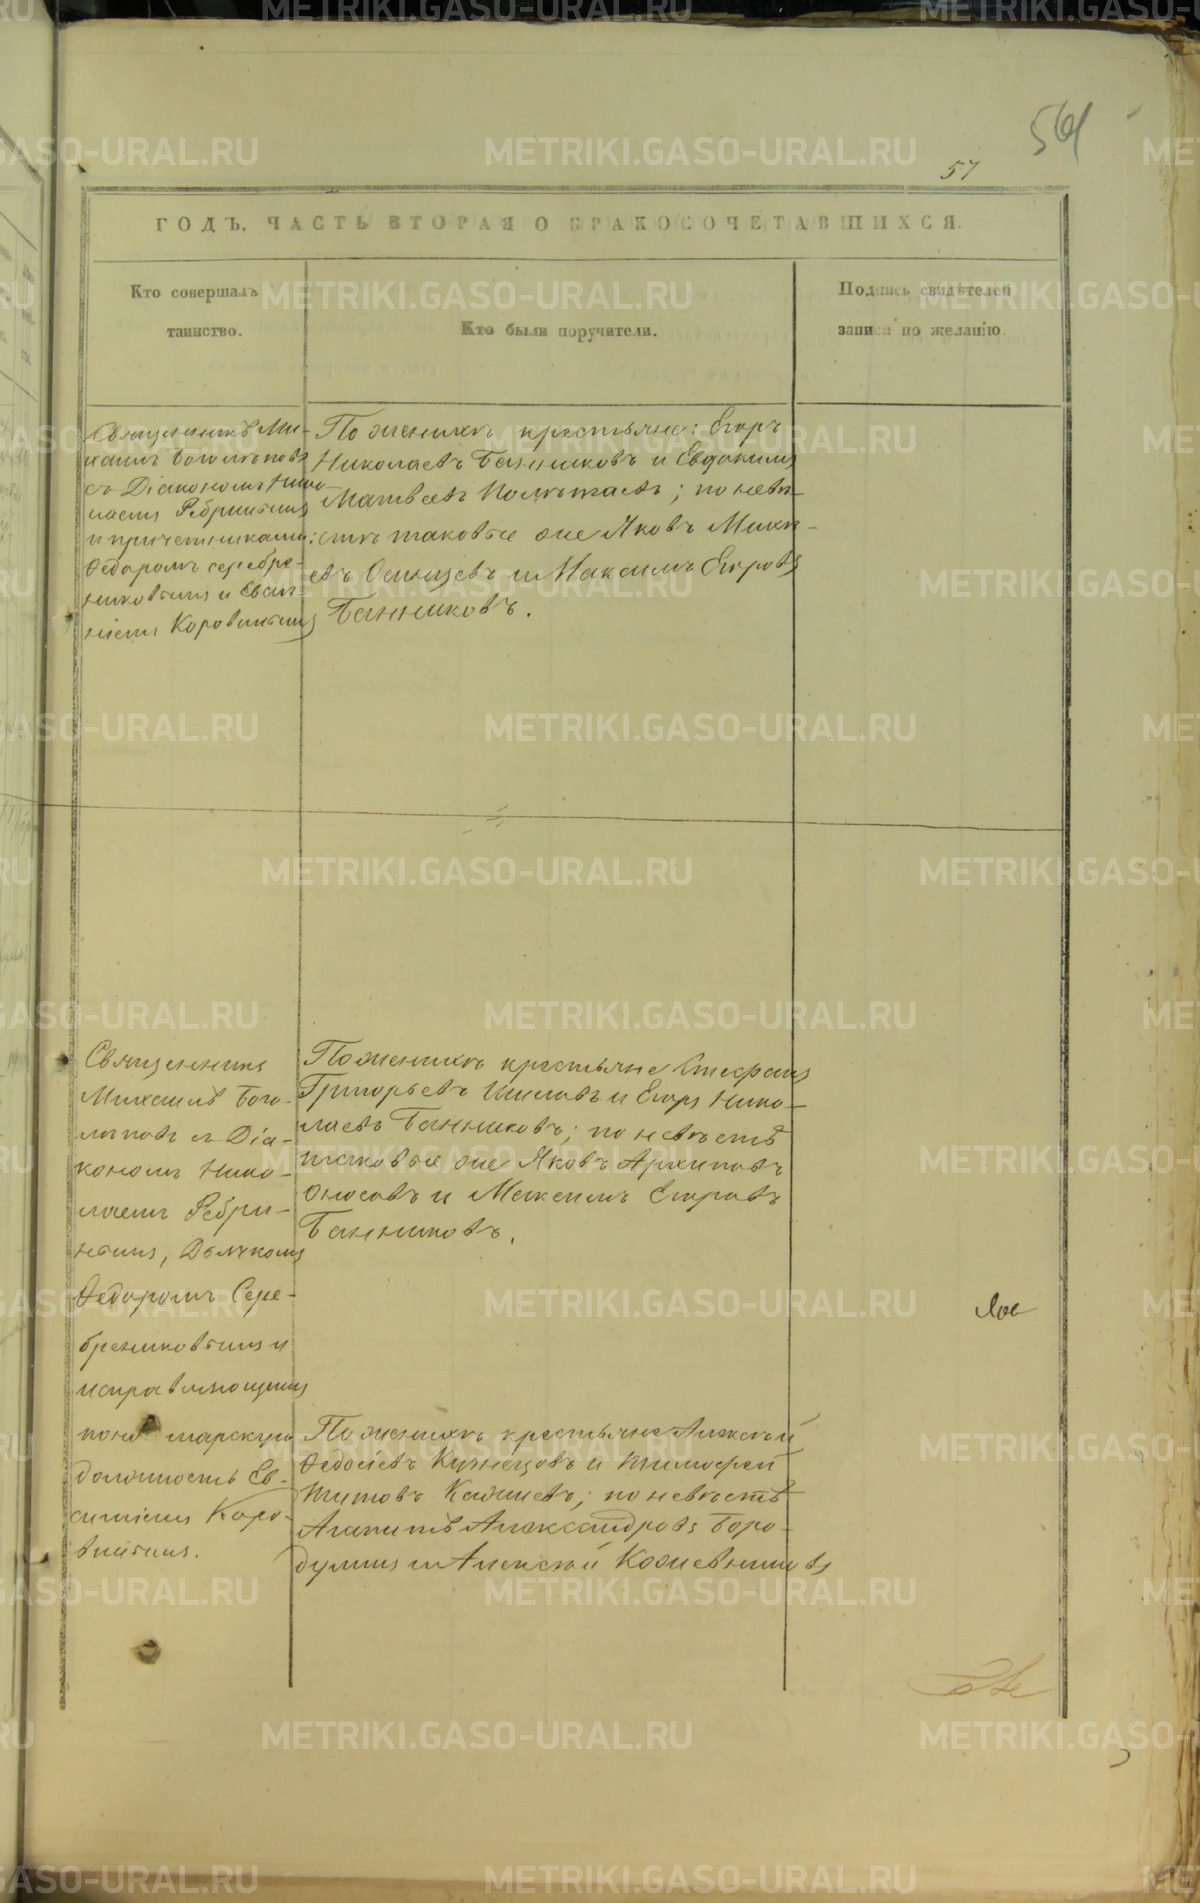 561
57
ГОДЪ, ЧАСТЬ ВТОРАЯ О БРАКОСОЧЕТАВШИХСЯ.
Кто совершалъ
таинство.
Кто были поручители.
Подпись свидѣтелей
записи по желанію.
Священникъ Ми-
хаилъ Боголѣповъ
съ Діакономъ Нико-
лаемъ Ребринымъ
и причетниками:
Ѳедоромъ Серебре-
никовымъ и Евѳи-
міемъ Коровинымъ
По женихѣ крестьяне: Егоръ
Николаевъ Банниковъ и Евдокимъ
Матвеевъ; по невѣ-
стѣ таковые же Яковъ
и Максимъ Егоровъ
Банниковъ.
Священникъ
Михаилъ Бого-
лѣповъ съ Діа-
кономъ Нико-
лаемъ Ребри-
нымъ, Дьячкомъ
Ѳедоромъ Сере-
брениковымъ и
исправляющимъ
понамарскую
должность Ев-
ѳиміемъ Коро-
винымъ.
По женихѣ крестьяне Стефанъ
Григорьевъ Шиловъ и Егоръ Нико-
лаевъ Банниковъ; по невѣстѣ
таковые же Яковъ Архиповъ
Оносовъ и Максимъ Егоровъ
Банниковъ.
По женихѣ крестьяне Алексѣй
Ѳедосѣевъ Кузнецовъ и Тимофей
Титовъ; по невѣстѣ
Агапитъ Александровъ Боро-
дулинъ и Алексѣй Кожевниковъ
METRIKI.GASO-URAL.RU